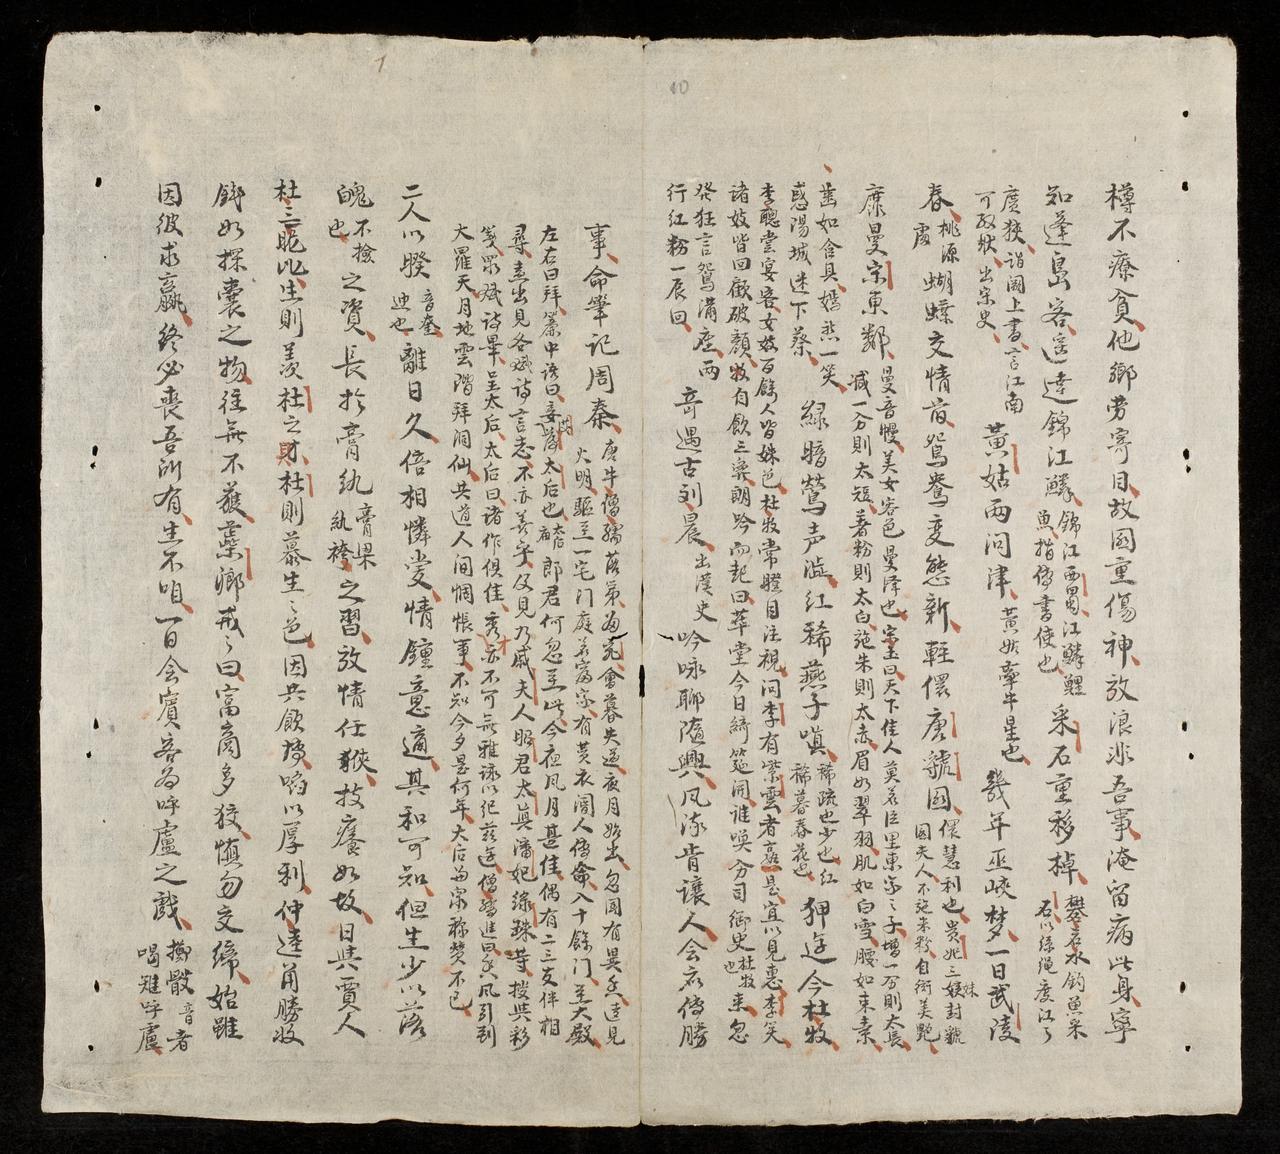 10
樽不療貧他鄉勞寄目故國重傷神放浪非吾事淹留病此身寧
知蓬島客遙達錦江鱗錦江西蜀江鱗鯉
魚指傳書使也采石重移棹攀若水釣魚采
石以絲繩度江之
廣狹詣闕上書言江南
可取狀出宋史黃姑兩問津黃姑牽牛星也幾年巫峽夢一日武陵
春桃源
處蝴蝶交情首鴛鴦變態新輕儇唐虢國儇慧利也貴妃三姨封虢
國夫人不施朱粉自衒美艷
靡曼宋東鄰曼音慢美女容色曼澤也宋玉曰天下佳人莫若臣里東家之子增一分則太長
減一分則太短著粉則太白施朱則太赤眉如翠羽肌如白雪腰如束素
齒如含貝嫣然一笑
惑陽城迷下蔡綠暗鶯声澁紅稀燕子嗔稀疏也少也紅
稀暮春花也狎逰今杜牧
李聰嘗宴客女妓百餘人皆姝色杜牧常瞪目注視问李有紫雲者孰是宜以見惠李笑
諸妓皆回顧破顏牧自飲三爵朗吟而起曰華堂今日綺筵開誰喚分司御史杜牧
也來忽
發狂言驚滿座兩
行紅粉一辰回竒遇古刘晨出漢史吟咏聊隨興风流肯讓人会衣傳勝
事命筆记周秦唐牛僧孺落第西宛會暮失道夜月始出忽闻有異香遠見
火明驅至一宅门庭若富家有黃衣阍人傳命入十餘门至大殿
左右曰拜簾中语曰妾漢太后也太后郎君何忽至此今夜风月甚佳偶有二三友伴相
尋遂出見各赋诗言志不亦善乎及見乃戚夫人昭君太真潘妃綠珠等授與彩
箋眾赋诗畢呈太后太后曰诸作俱佳秀才亦不可無雅詠以纪茲逰僧孺進曰香风引到
大羅天月地雲階拜洞仙共道人间惆悵事不知今夕是何年大后曲宗称赞不已
二人以睽音奎
也離日久倍相憐愛情鍾意適其和可知但生少以落
魄不檢
也之资長於膏紈膏粱
紈袴之習放情任狹技癢如故日與賈人
杜三昵比生則羡杜之財杜則慕生之色因共飲博啗以厚利仲逵甪勝收
錢如探囊之物往無不獲藥鄉戒之曰富商多狡慎勿交締始雖
因彼求贏終必喪吾所有生不咱一日会賓客為呼盧之戲擲骰音者
喝雉呼盧